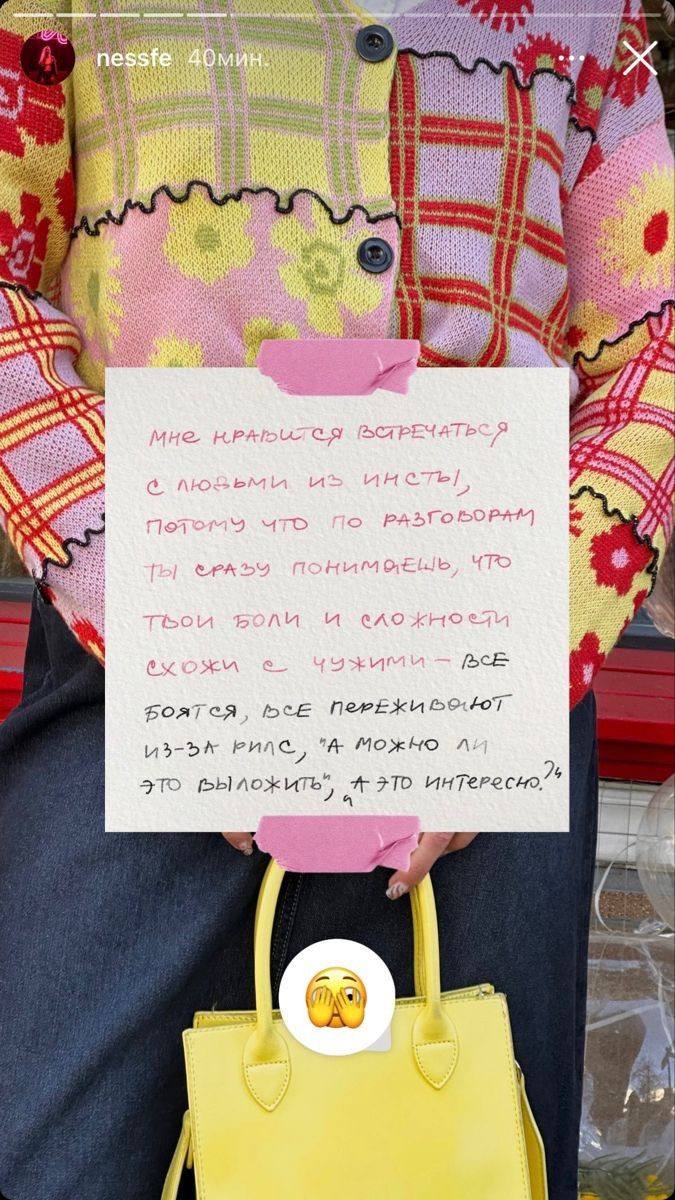 nessfe 40мин.
мне нравится встречаться
с людьми из инсты,
потому что по разговорам
ты сразу понимаешь, что
твои боли и сложности
схожи с чужими – все
боятся, все переживают
из-за рилс, "а можно ли
это выложить", "а это интересно?"